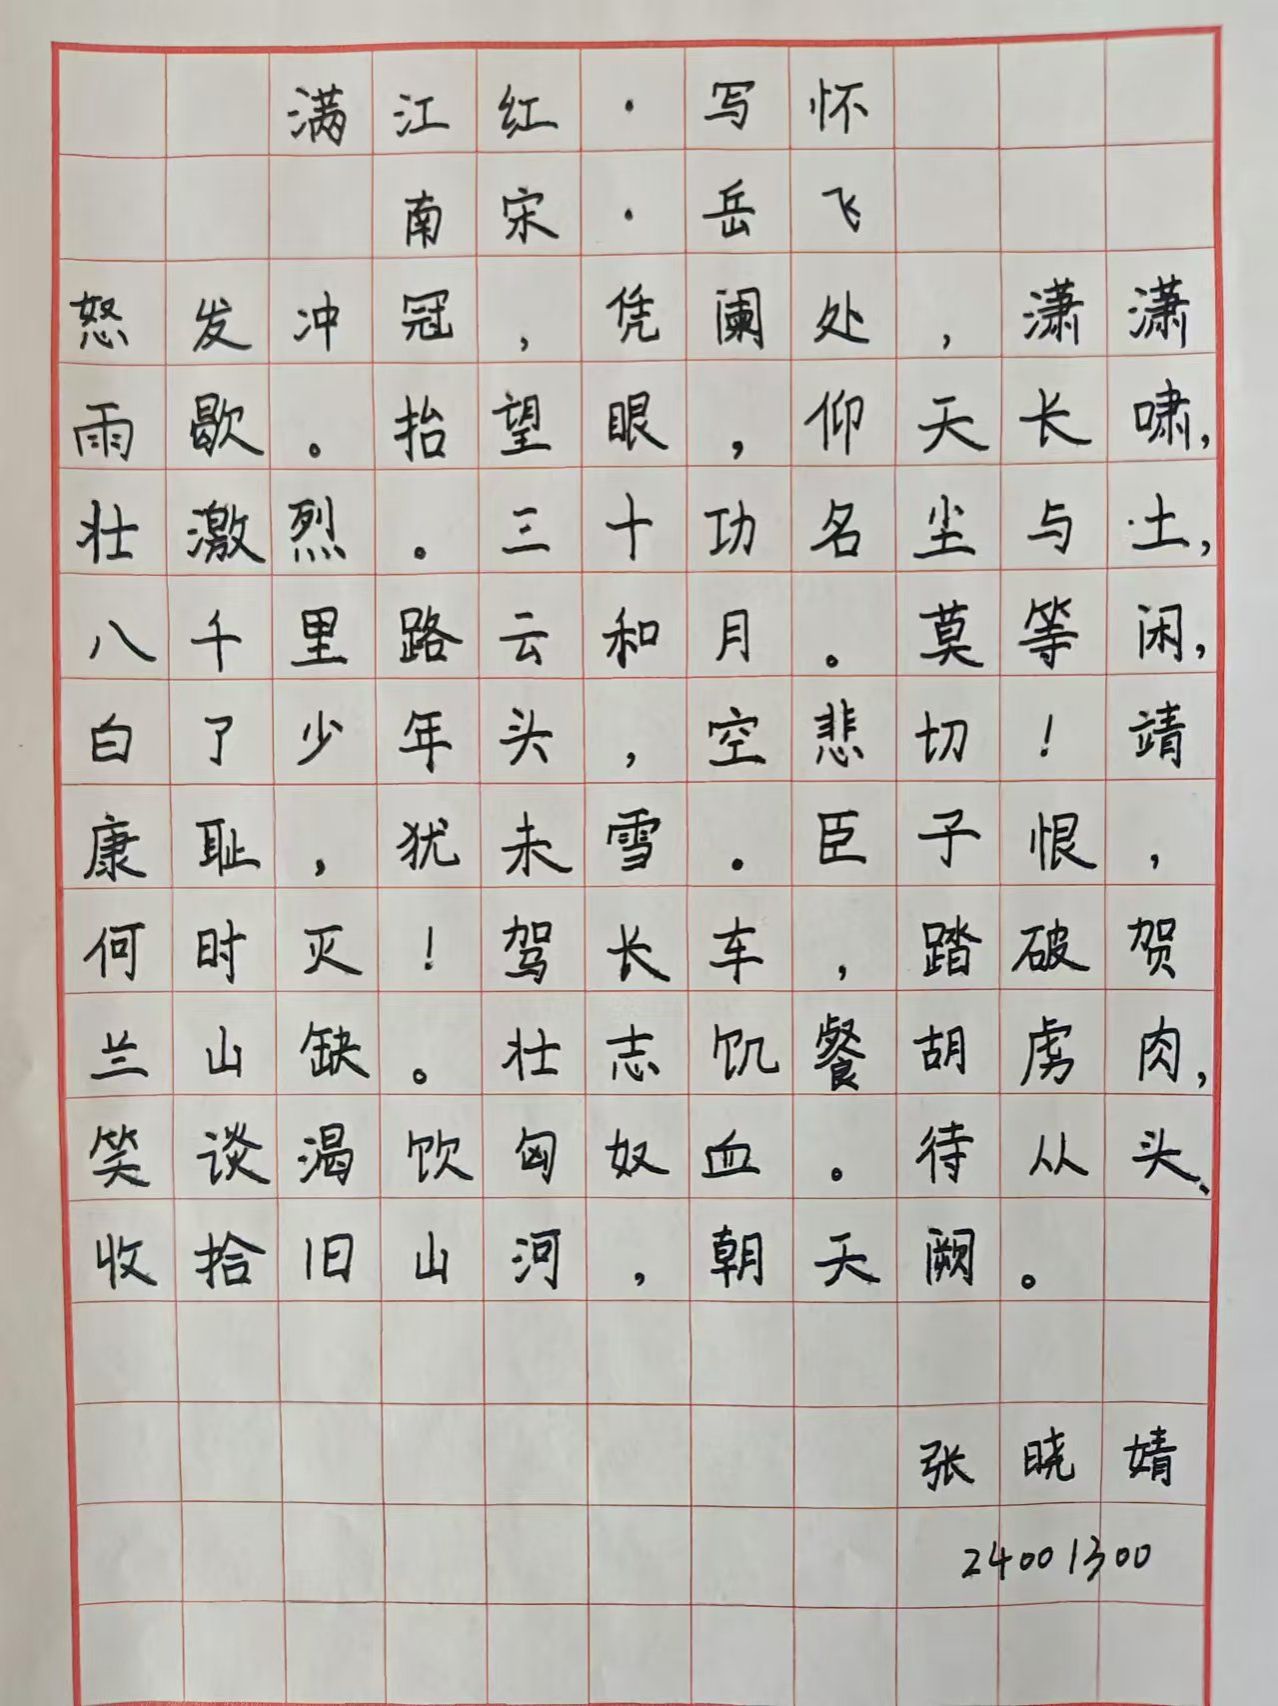 满江红·写怀
南宋·岳飞
怒发冲冠，凭阑处，潇潇
雨歇。抬望眼，仰天长啸，
壮激烈。三十功名尘与土，
八千里路云和月。莫等闲，
白了少年头，空悲切！靖
康耻，犹未雪。臣子恨，
何时灭！驾长车，踏破贺
兰山缺。壮志饥餐胡虏肉，
笑谈渴饮匈奴血。待从头、
收拾旧山河，朝天阙。
张晓婧
24001300